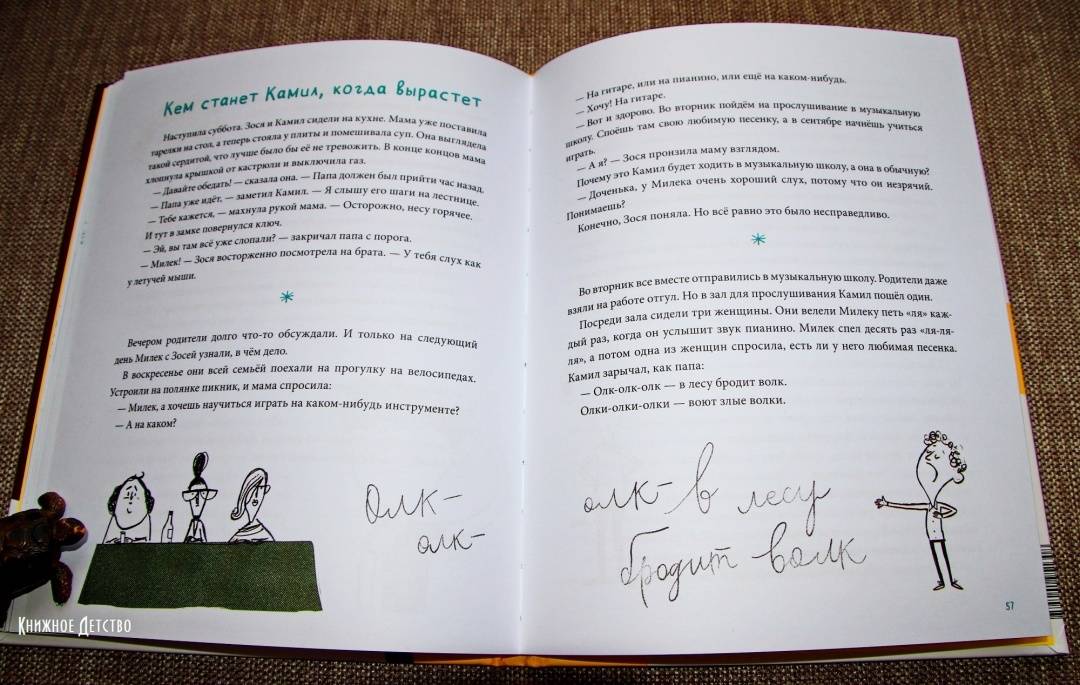 Кем станет Камил, когда вырастет
Наступила суббота. Зося и Камил сидели на кухне. Мама уже поставила
тарелки на стол, а теперь стояла у плиты и помешивала суп. Она выглядела
такой сердитой, что лучше было бы её не тревожить. В конце концов мама
хлопнула крышкой от кастрюли и выключила газ.
— Давайте обедать! — сказала она. — Папа должен был прийти час назад.
— Папа уже идёт, — заметил Камил. — Я слышу его шаги на лестнице.
— Тебе кажется, — махнула рукой мама. — Осторожно, несу горячее.
И тут в замке повернулся ключ.
— Эй, вы там всё уже слопали? — закричал папа с порога.
— Милек! — Зося восторженно посмотрела на брата. — У тебя слух как
у летучей мыши.
Вечером родители долго что-то обсуждали. И только на следующий
день Милек с Зосей узнали, в чём дело.
В воскресенье они всей семьёй поехали на прогулку на велосипедах.
Устроили на полянке пикник, и мама спросила:
— Милек, а хочешь научиться играть на каком-нибудь инструменте?
— А на каком?
Олк-
олк-
Книжное Детство
— На гитаре, или на пианино, или ещё на каком-нибудь.
— Хочу! На гитаре.
— Вот и здорово. Во вторник пойдём на прослушивание в музыкальную
школу. Споёшь там свою любимую песенку, а в сентябре начнёшь учиться
играть.
— А я? — Зося пронзила маму взглядом.
Почему это Камил будет ходить в музыкальную школу, а она в обычную?
— Доченька, у Милека очень хороший слух, потому что он незрячий.
Понимаешь?
Конечно, Зося поняла. Но всё равно это было несправедливо.
Во вторник все вместе отправились в музыкальную школу. Родители даже
взяли на работе отгул. Но в зал для прослушивания Камил пошёл один.
Посреди зала сидели три женщины. Они велели Милеку петь «ля» каж-
дый раз, когда он услышит звук пианино. Милек спел десять раз «ля-ля-
ля», а потом одна из женщин спросила, есть ли у него любимая песенка.
Камил зарычал, как папа:
— Олк-олк-олк — в лесу бродит волк.
Олки-олки-олки — воют злые волки.
олк- в лесу
бродит волк
57